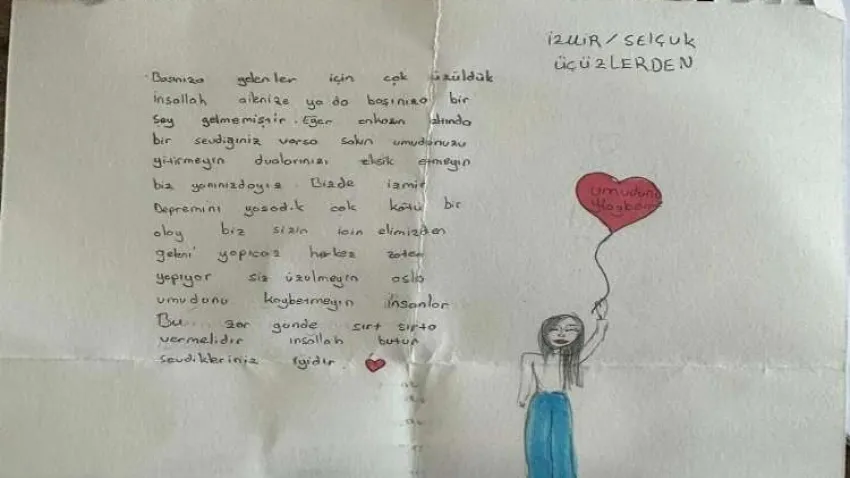 İZMİR / SELÇUK
ÜÇÜZLERDEN
Başınıza gelenler için çok üzüldük
İnşallah ailenize ya da başınıza bir
şey gelmemiştir. Eğer enkazın altında
bir sevdiğiniz varsa sakın umudunuzu
yitirmeyin dualarınızı eksik etmeyin
biz yanınızdayız. Bizde izmir
Depremini yaşadık çok kötü bir
olay biz sizin için elimizden
geleni yapıcaz herkez zaten
yapıyor siz üzülmeyin asla
umudunu kaybetmeyin insanlar
Bu zor günde sırt sırta
vermelidir inşallah bütün
sevdikleriniz iyidir.
umudunu